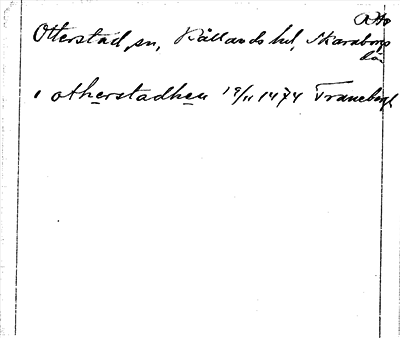 Otterstad sn, Kållands hd, Skaraborgs
län
i otherstadhen 19/11 1474 Traneberg